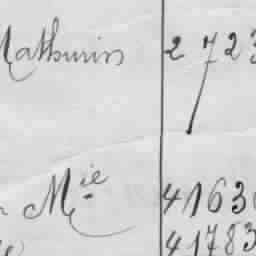 Mathurin 2 723
Mie 4163
4783